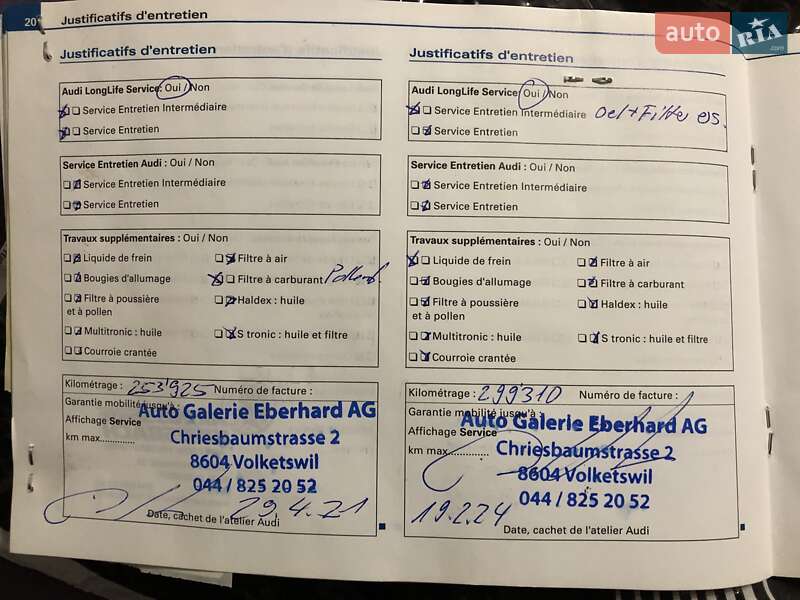 20
Justificatifs d'entretien
auto RIA .com
Justificatifs d'entretien
Audi LongLife Service: Oui / Non
Service Entretien Intermédiaire
Service Entretien
Service Entretien Audi : Oui / Non
Service Entretien Intermédiaire
Service Entretien
Travaux supplémentaires : Oui / Non
Liquide de frein
Filtre à air
Bougies d'allumage
Filtre à carburant
Filtre à poussière
et à pollen
Haldex : huile
Multitronic : huile
S tronic : huile et filtre
Courroie crantée
Kilométrage : 253'925 Numéro de facture :
Garantie mobilité jusqu'à :
Affichage Service
km max.............
Auto Galerie Eberhard AG
Chriesbaumstrasse 2
8604 Volketswil
044 / 825 20 52
29.4.21
Date, cachet de l'atelier Audi
Justificatifs d'entretien
Audi LongLife Service: Oui / Non
Service Entretien Intermédiaire Oel + Filter
Service Entretien
Service Entretien Audi : Oui / Non
Service Entretien Intermédiaire
Service Entretien
Travaux supplémentaires : Oui / Non
Liquide de frein
Filtre à air
Bougies d'allumage
Filtre à carburant
Filtre à poussière
et à pollen
Haldex : huile
Multitronic : huile
S tronic : huile et filtre
Courroie crantée
Kilométrage : 299'310 Numéro de facture :
Garantie mobilité jusqu'à :
Affichage Service
km max.............
Auto Galerie Eberhard AG
Chriesbaumstrasse 2
8604 Volketswil
044 / 825 20 52
19.2.24
Date, cachet de l'atelier Audi